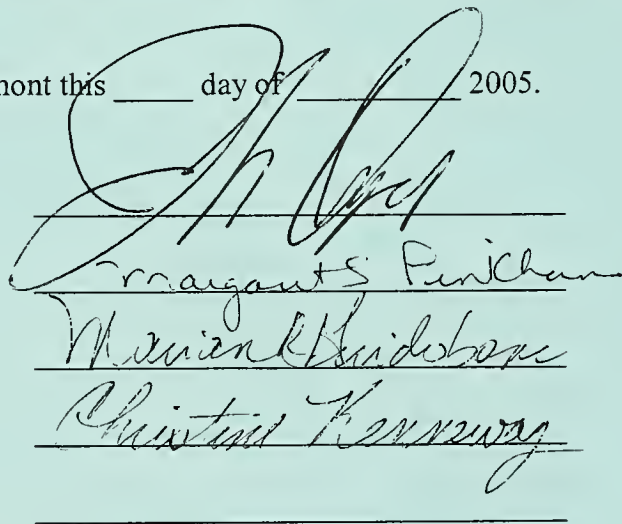 mont this ____ day of ________ 2005.
Margaret S Pinkham
Marian K
Christine Kenneway